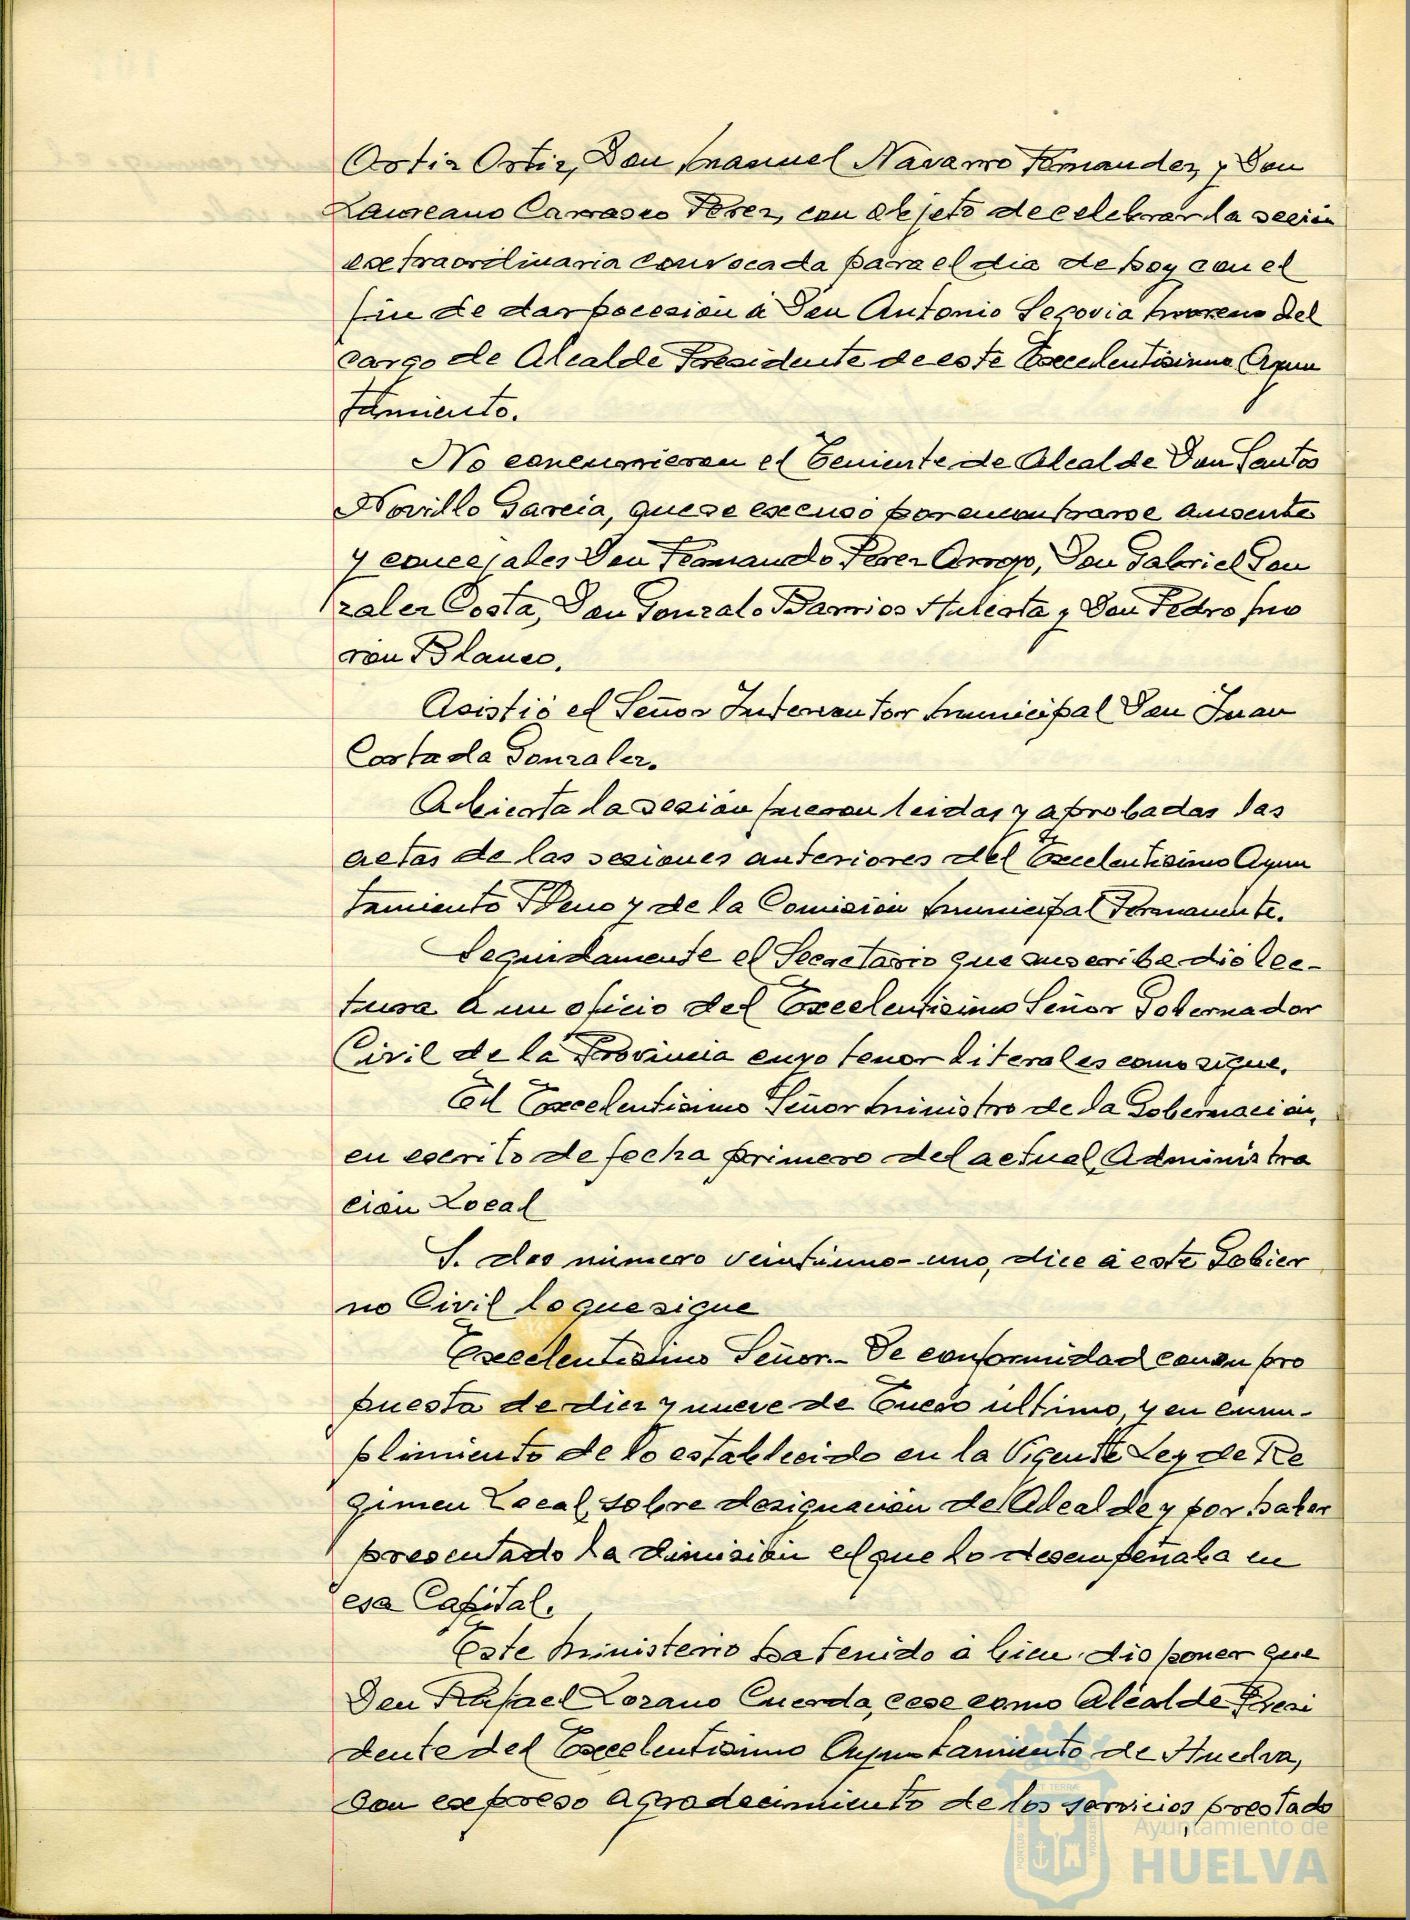 Ortiz Ortiz, Don Manuel Navarro Fernandez, y Don
Laureano Carrasco Perez, con objeto de celebrar la seción
extraordinaria convocada para el dia de hoy con el
fin de dar poceción á Don Antonio Segovia Moreno del
cargo de Alcalde Presidente de este Excelentisimo Ayun
tamiento.
No concurrieron el Teniente de Alcalde Don Santos
Novillo Garcia, que se excusó por encontrarse ausente
y concejales Don Fernando Perez Arroyo, Don Gabriel Gon
zalez Costa, Don Gonzalo Barrios Huleata y Don Pedro Mo
rón Blanco.
Asistió el Señor Interventor Municipal Don Juan
Cortada Gonzalez.
Abierta la sesión fueron leidas y aprobadas las
actas de las sesiones anteriores del Excelentisimo Ayun
tamiento Pleno y de la Comisión Municipal Permanente.
Seguidamente el Secretario que suscribe dió lec-
tura á un oficio del Excelentisimo Señor Gobernador
Civil de la Provincia cuyo tenor literal es como sigue.
El Excelentisimo Señor Ministro de la Gobernación,
en escrito de fecha primero del actual, Administra
ción Local
S. dos número veintiuno-uno, dice á este Gobier
no Civil lo que sigue
Excelentisimo Señor.- De conformidad con su pro
puesta de diez y nueve de Enero último, y en cum-
plimiento de lo establecido en la Vigente Ley de Re
gimen Local, sobre designación de Alcalde y por haber
presentado la dimisión el que lo desempeñaba en
esa Capital.
Este Ministerio ha tenido á bien disponer que
Don Rafael Lozano Cuerda, cese como Alcalde Presi
dente del Excelentisimo Ayuntamiento de Huelva,
con expreso agradecimiento de los servicios prestado
Ayuntamiento de
HUELVA